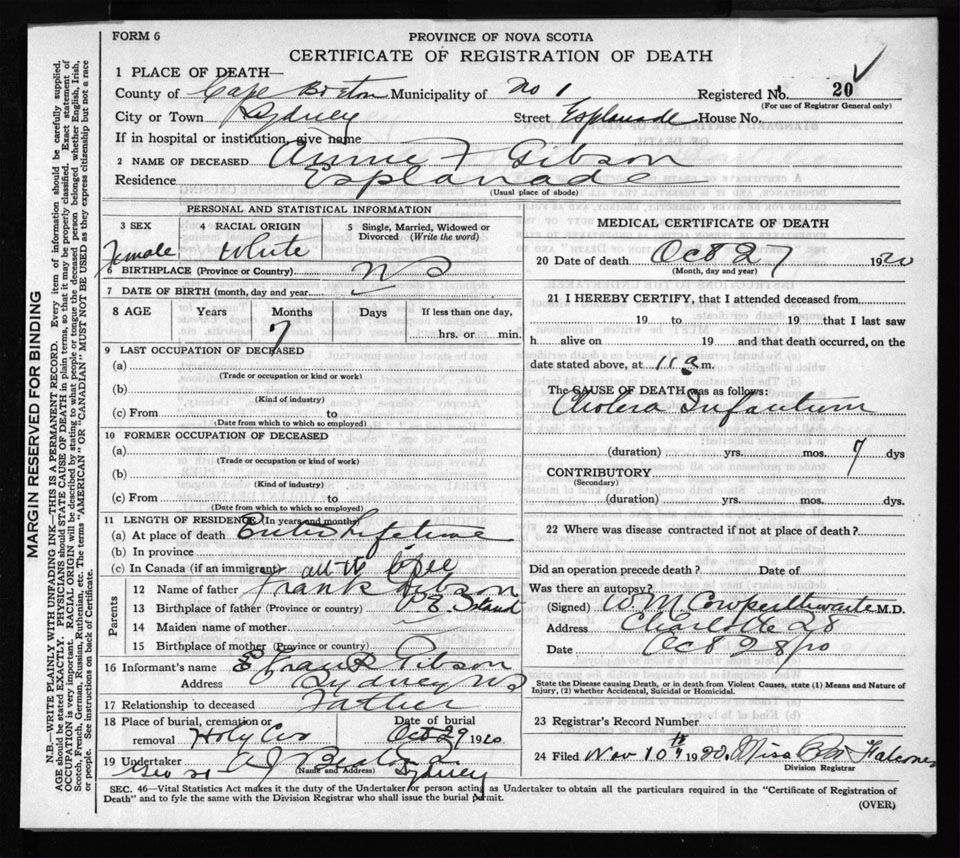 FORM 6
PROVINCE OF NOVA SCOTIA
CERTIFICATE OF REGISTRATION OF DEATH
1 PLACE OF DEATH—
County of Cape Breton Municipality of No 1 Registered No. 20
(For use of Registrar General only)
City or Town Sydney Street Esplanade House No.
If in hospital or institution, give name
2 NAME OF DECEASED Annie F Gibson
Residence Esplanade
(Usual place of abode)
PERSONAL AND STATISTICAL INFORMATION
3 SEX 4 RACIAL ORIGIN 5 Single, Married, Widowed or Divorced (Write the word)
Female White
6 BIRTHPLACE (Province or Country) NS
7 DATE OF BIRTH (month, day and year)
8 AGE Years Months Days If less than one day,
7 hrs. or min.
9 LAST OCCUPATION OF DECEASED
(a)
(Trade or occupation or kind or work)
(b)
(Kind of industry)
(c) From to
(Date from which to which so employed)
10 FORMER OCCUPATION OF DECEASED
(a)
(Trade or occupation or kind of work)
(b)
(Kind of industry)
(c) From to
(Date from which to which so employed)
11 LENGTH OF RESIDENCE (In years and months)
(a) At place of death Entire Lifetime
(b) In province
(c) In Canada (if an immigrant)
Parents
12 Name of father Frank Gibson
13 Birthplace of father (Province or country) P E Island
14 Maiden name of mother
15 Birthplace of mother (Province or country)
16 Informant's name Frank Gibson
Address Sydney NS
17 Relationship to deceased Father
18 Place of burial, cremation or Date of burial
removal Holy Cro Oct 29 1920
19 Undertaker A J Beaton
(Name and Address) Sydney
MEDICAL CERTIFICATE OF DEATH
20 Date of death Oct 27 1920
(Month, day and year)
21 I HEREBY CERTIFY, that I attended deceased from
19 to 19 that I last saw
h alive on 19 and that death occurred, on the
date stated above, at 11 a m.
The CAUSE OF DEATH was as follows:
Cholera Infantum
(duration) yrs. mos. 7 dys
CONTRIBUTORY
(Secondary)
(duration) yrs. mos. dys.
22 Where was disease contracted if not at place of death?
Did an operation precede death? Date of
Was there an autopsy?
(Signed) W M Cowperthwaite M.D.
Address Charlotte 28
Date Oct 28/20
State the Disease causing Death, or in death from Violent Causes, state (1) Means and Nature of
Injury, (2) whether Accidental, Suicidal or Homicidal.
23 Registrar's Record Number
24 Filed Nov 10th 1920. Miss Falconer
Division Registrar
SEC. 46—Vital Statistics Act makes it the duty of the Undertaker or person acting as Undertaker to obtain all the particulars required in the "Certificate of Registration of
Death" and to fyle the same with the Division Registrar who shall issue the burial permit.
(OVER)
MARGIN RESERVED FOR BINDING
N.B.—WRITE PLAINLY WITH UNFADING INK—THIS IS A PERMANENT RECORD. Every item of information should be carefully supplied.
AGE should be stated EXACTLY. PHYSICIANS should STATE CAUSE OF DEATH in plain terms, so that it may be properly classified. Exact statement of
OCCUPATION is very important. RACIAL ORIGIN will be described by stating to what people or tongue the deceased person belonged whether English, Irish,
Scotch, French, German, Russian, Ruthenian, etc. The terms "AMERICAN" OR "CANADIAN" MUST NOT BE USED as they express citizenship but not a race
or people. See instructions on back of Certificate.